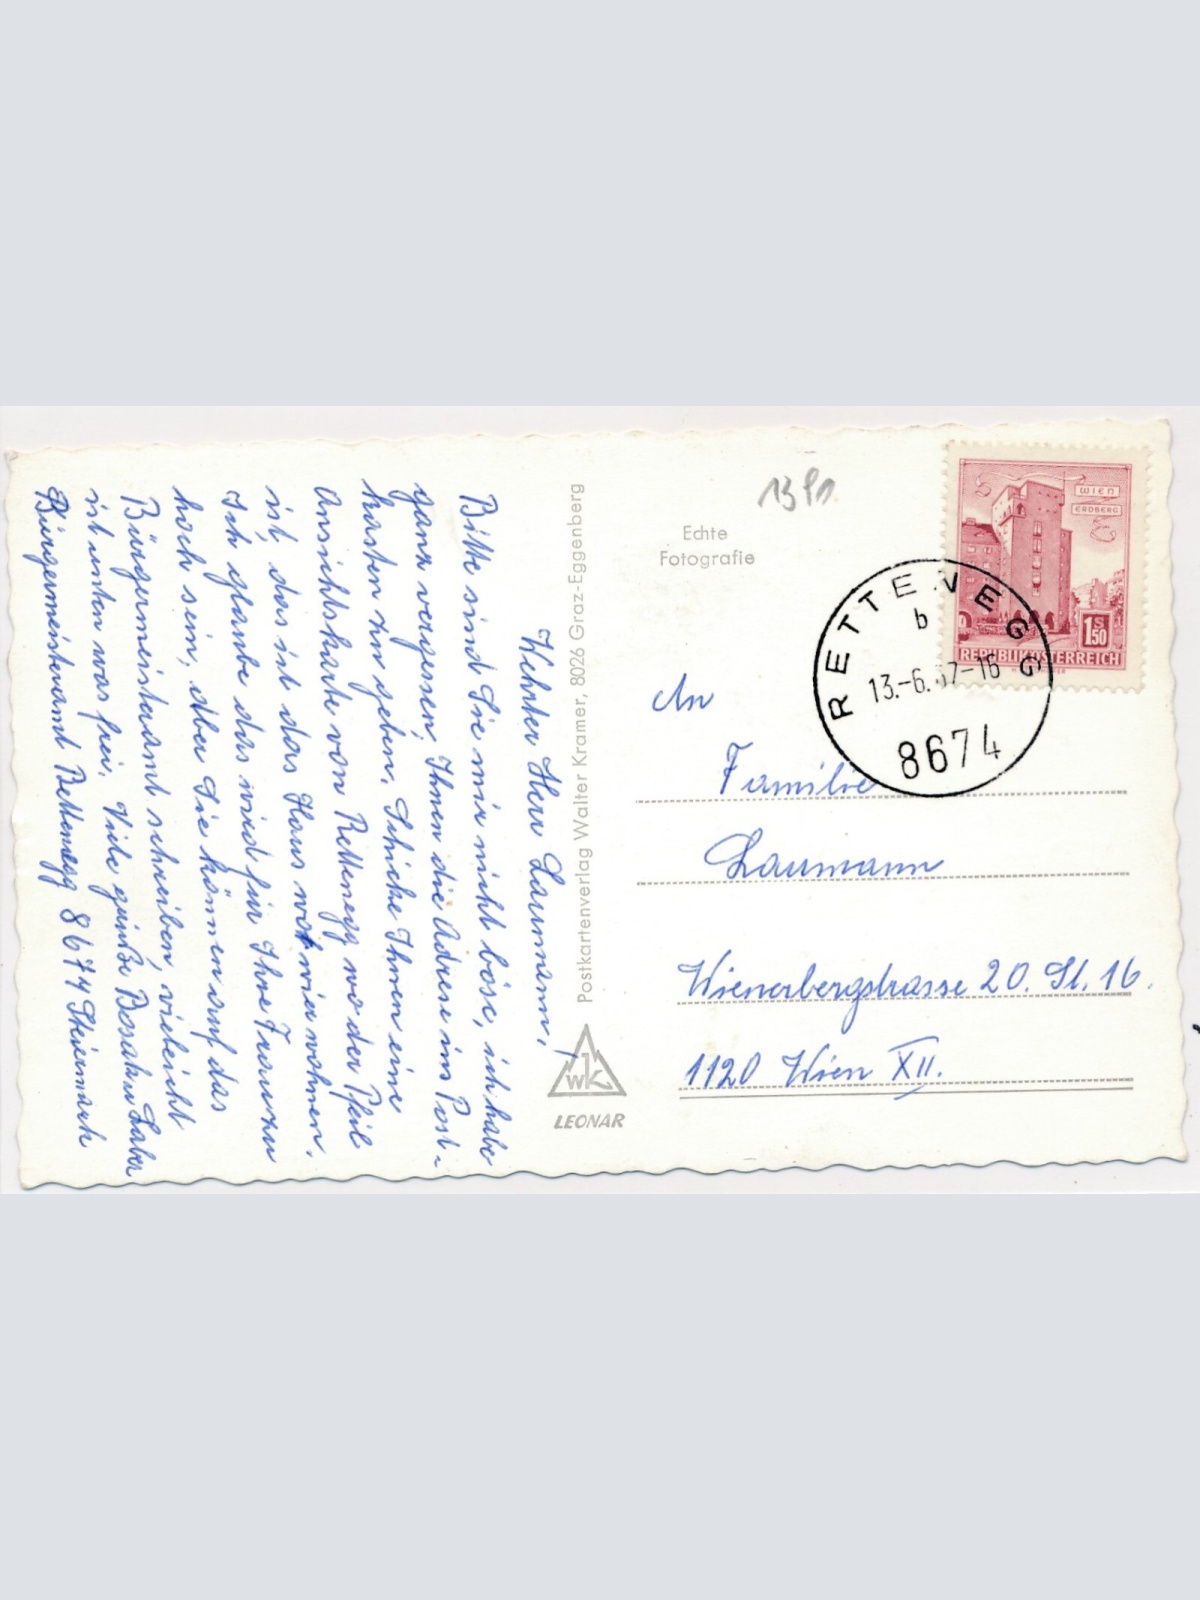 Wehrter Herr Laumann,
Bitte sind Sie mir nicht böse, ich habe
ganz vergessen, Ihnen die Adrese ins Post-
kasten zu geben. Schicke Ihnen eine
Ansichtskarte von Rettenegg wo der Pfeil
ist, das ist das Haus wo wier wohnen.
Ich glaube das wird für Ihre Frau zu
hoch sein, aber Sie können auf das
Bürgermeisteramt schreiben, vieleicht
ist unten was frei. Viele grüße
Bürgermeisteramt Rettenegg 8674 Steiermark
Postkartenverlag Walter Kramer, 8026 Graz-Eggenberg
WK
LEONAR
1391
Echte
Fotografie
WIEN
ERDBERG
1S50
REPUBLIK ÖSTERREICH
RETTENEGG
b
13.-6.67-16
8674
An
Familie
Laumann
Wienerbergstrasse 20. St. 16.
1120 Wien XII.